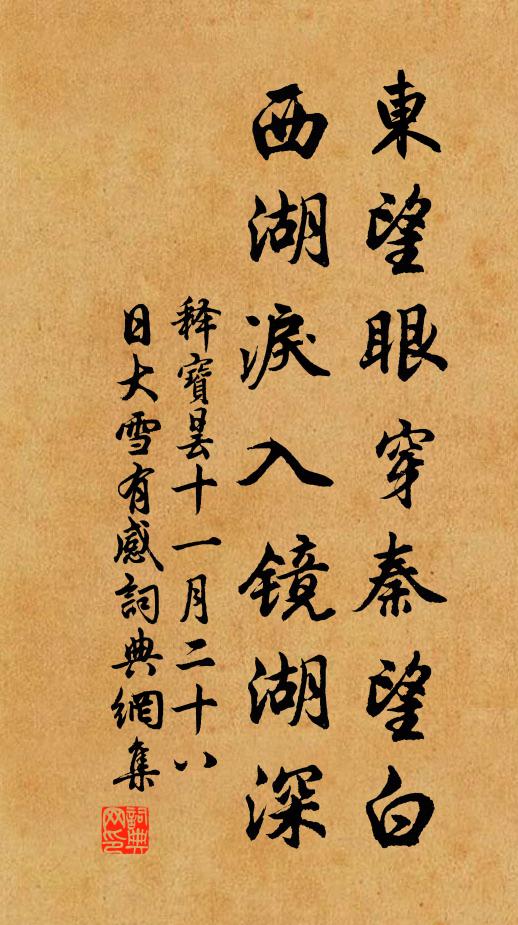 東望眼穿秦望白
西湖淚入镜湖深
释寶曇十一月二十八
日大雪有感詞典網集
詞典网印